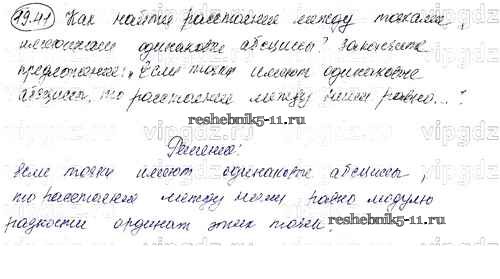 19.41 Как найти расстояние между точками,
имеющими одинаковые абсциссы? Закончите
предложение: „Если точки имеют одинаковые
абсциссы, то расстояние между ними равно...".
reshebnik5-11.ru
Решение:
Если точки имеют одинаковые абсциссы,
то расстояние между ними равно модулю
разности ординат этих точек.
reshebnik5-11.ru